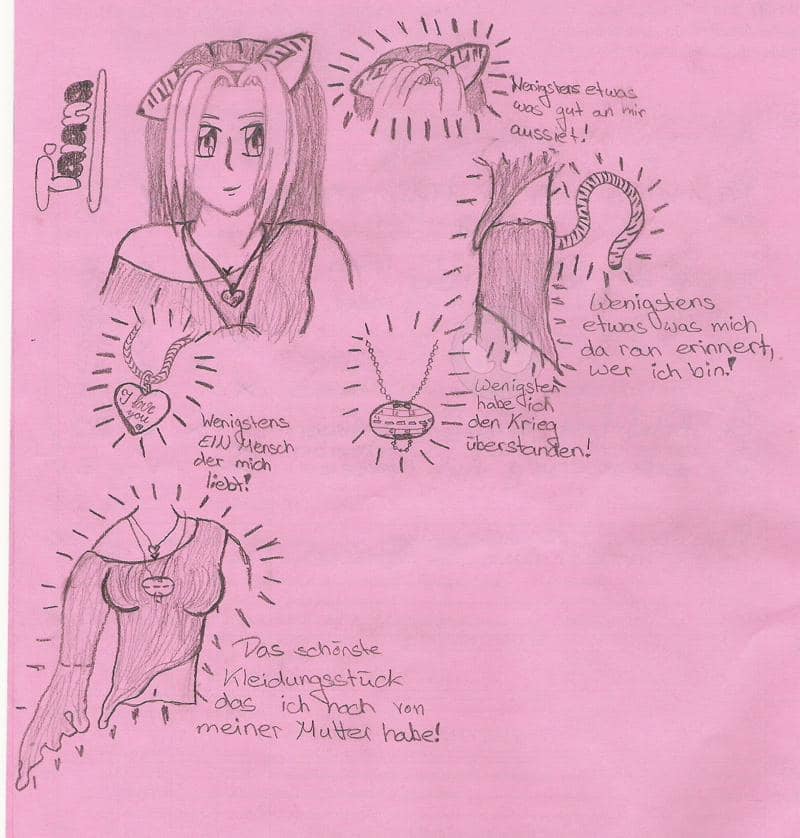 Wenigstens etwas
was gut an mir
aussiet!
Wenigstens
etwas was mich
da ran erinnert,
wer ich bin!
I love
you
Wenigstens
EIN Mensch
der mich
liebt!
Wenigsten
habe ich
den Krieg
überstanden!
Das schönste
Kleidungsstück
das ich noch von
meiner Mutter habe!